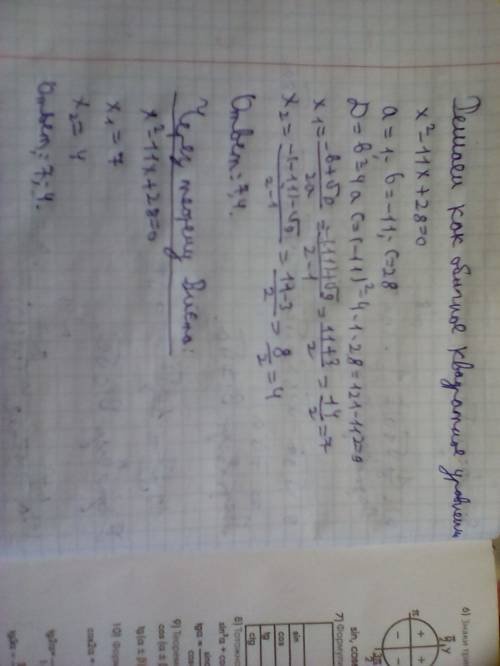 Решаем как обычное квадратное уравнение
x²-11x+28=0
a=1; b=-11; c=28
D=b²-4ac=(-11)²-4·1·28=121-112=9
x₁=-b+√D/2a=-(-11)+√9/2·1=11+3/2=14/2=7
x₂=-(-11)-√9/2·1=11-3/2=8/2=4
Ответ: 7; 4.
Через теорему Виета:
x²-11x+28=0
x₁=7
x₂=4
Ответ: 7; 4.
6) Знаки
π
y
+
+
-
7) Формулы
sin, cos
sin
cos
tg
ctg
8)
sin²α + cos
tgα =
9)
cos (α ±
tg (α ±
10)
cos2α =
tg2α=